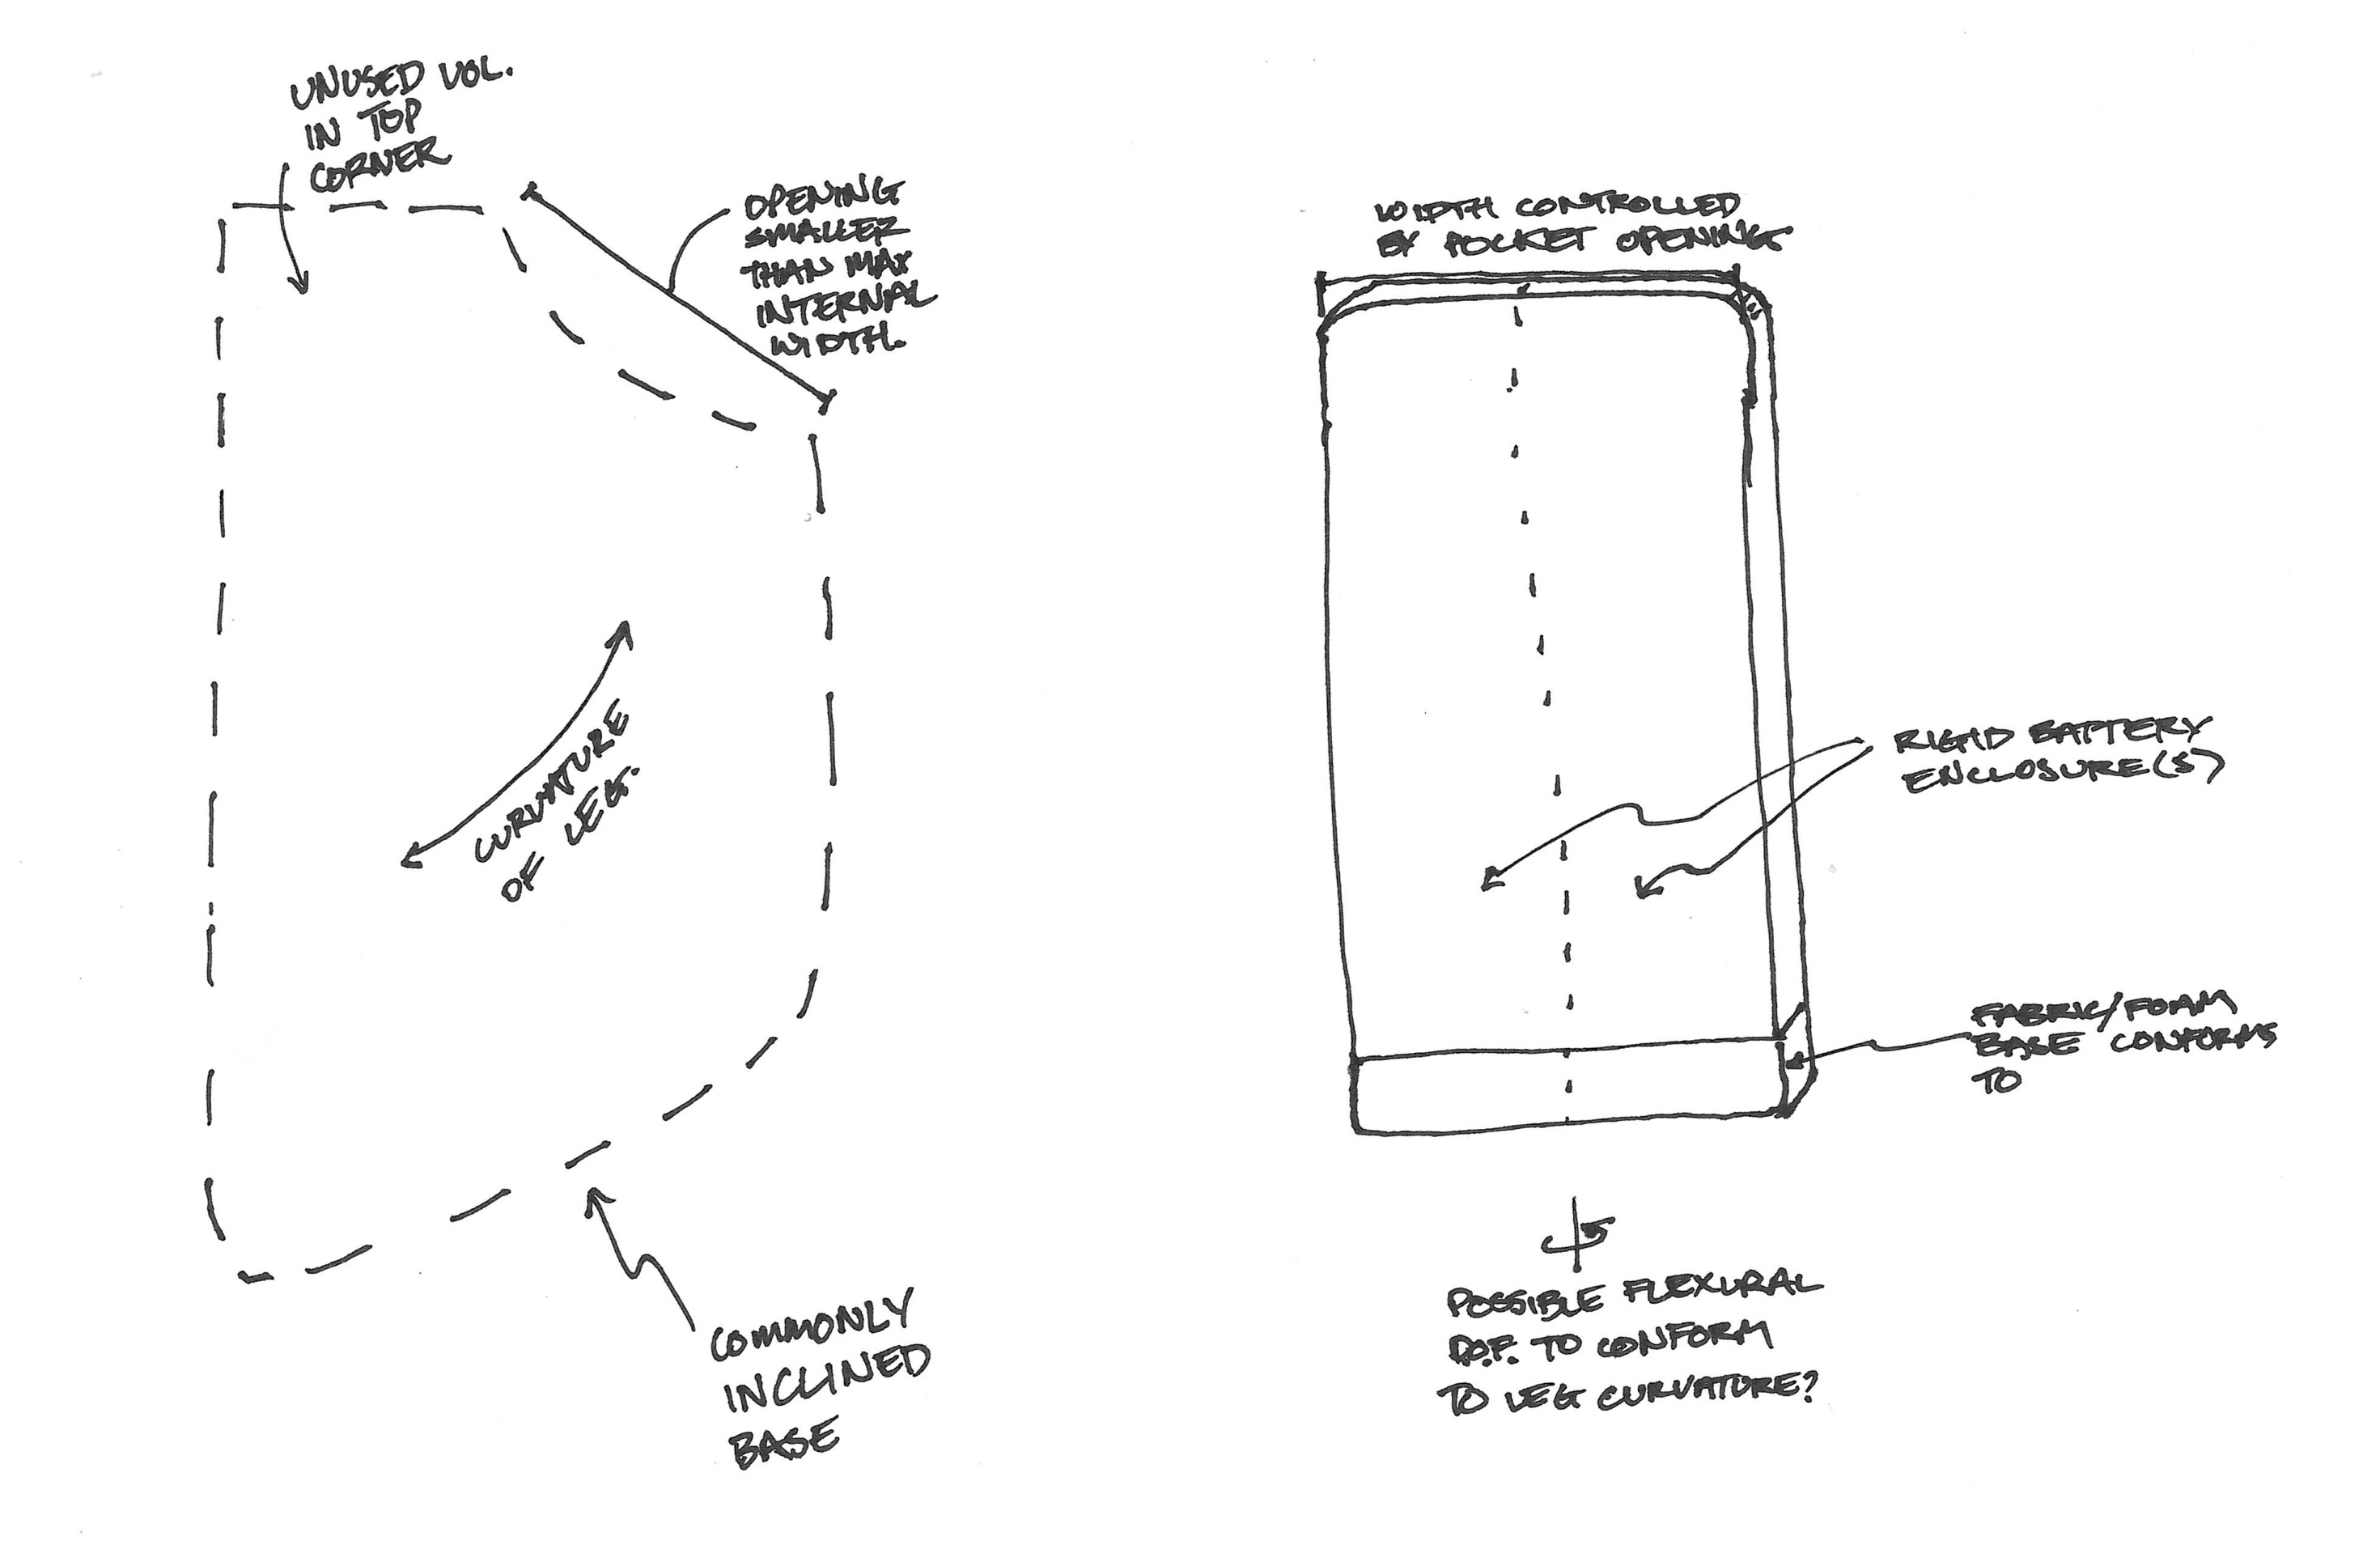 UNUSED VOL.
IN TOP
CORNER
OPENING
SMALLER
THAN MAX
INTERNAL
WIDTH.
CURVATURE
OF LEG.
COMMONLY
INCLINED
BASE
WIDTH CONTROLLED
BY POCKET OPENING
RIGID BATTERY
ENCLOSURE(S)
FABRIC/FOAM
BASE CONFORMS
TO
POSSIBLE FLEXURAL
D.O.F. TO CONFORM
TO LEG CURVATURE?